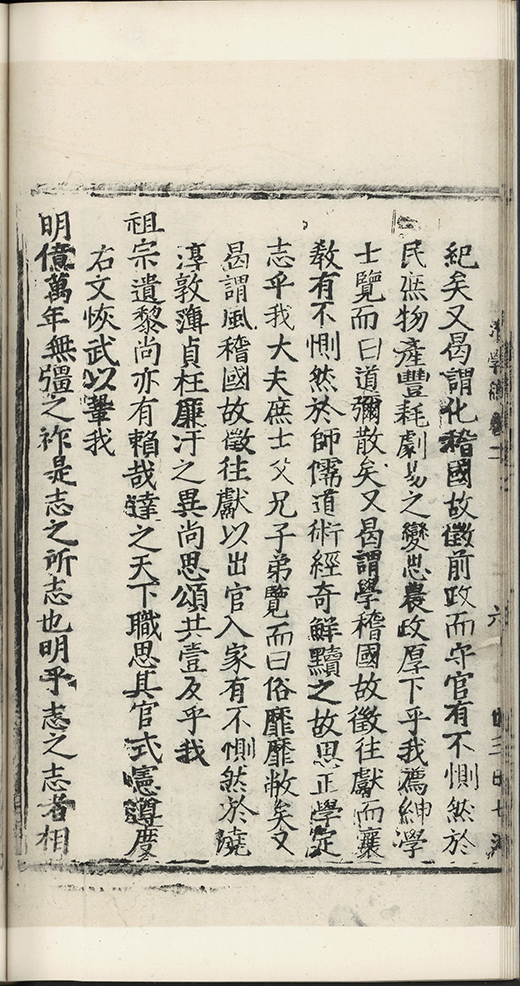 卷二
六
紀矣又曷謂化稽國故徵前政而守官有不惻然於
民庶物產豐耗劇易之變思農政厚下乎我薦紳學
士覽而曰道彌散矣又曷謂學稽國故徵往獻而襄
教有不惻然於師儒道術經奇觧黷之故思正學定
志乎我大夫庶士父兄子弟覽而曰俗靡靡敝矣又
曷謂風稽國故徵往獻以出官入家有不惻然於澆
淳敦薄貞枉廉汙之異尚思頌共壹及乎我
祖宗遺黎尚亦有賴哉達之天下職思其官式憲遵度
右文恢武以鞏我
明億萬年無彊之祚是志之所志也明乎志之志者相